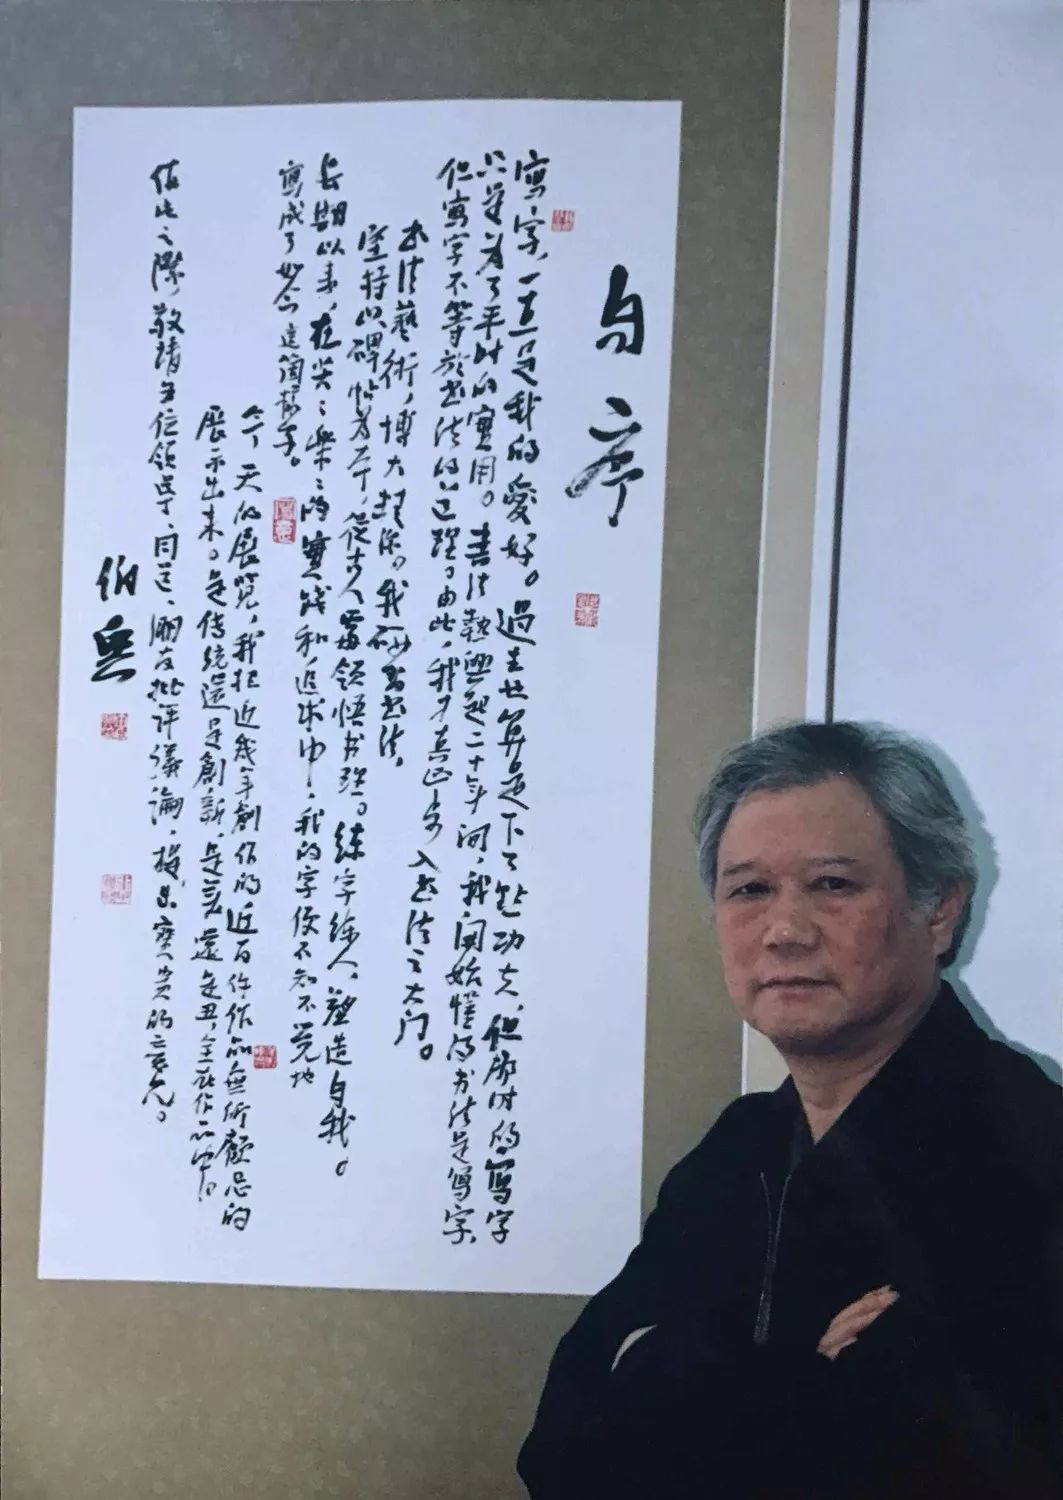 自序
寫字，一直是我的愛好。過去也算是下了點功夫，但那时的寫字
只是为了平时的實用。書法熱興起二十年间，我開始懂得书法是寫字，
但寫字不等於书法的道理，由此，我才真正步入书法之大门。
书法藝術，博大精深。我研習书法，
坚持以碑帖为本，從古人處领悟书理。练字练人，塑造自我。
长期以来，在苦苦樂樂的實践和追求中，我的字便不知不覺地
寫成了如今這箇樣子。
今天的展览，我把近幾年創作的近百件作品無所顧忌的
展示出来。是传统還是創新，是美還是丑，全在作品中。
值此之際，敬請各位领导、同道、朋友批评議論，提出寶贵的意见。
伯兵